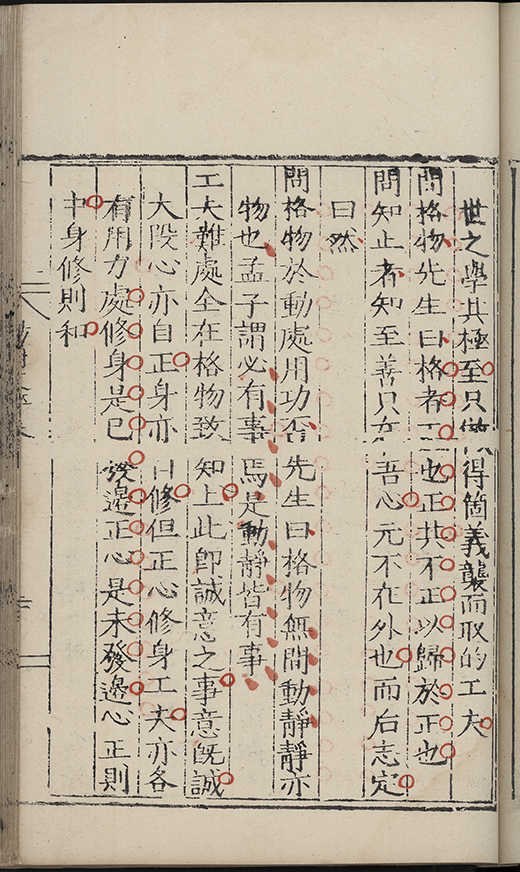 世之學其極至只做得箇義襲而取的工夫
問格物先生曰格者正也正其不正以歸於正也
問知止者知至善只在吾心元不在外也而后志定
曰然
問格物於動處用功否先生曰格物無間動靜靜亦
物也孟子謂必有事焉是動靜皆有事
工夫難處全在格物致知上此卽誠意之事意旣誠
大段心亦自正身亦自修但正心修身工夫亦各
有用力處修身是已發邊正心是未發邊心正則
中身修則和